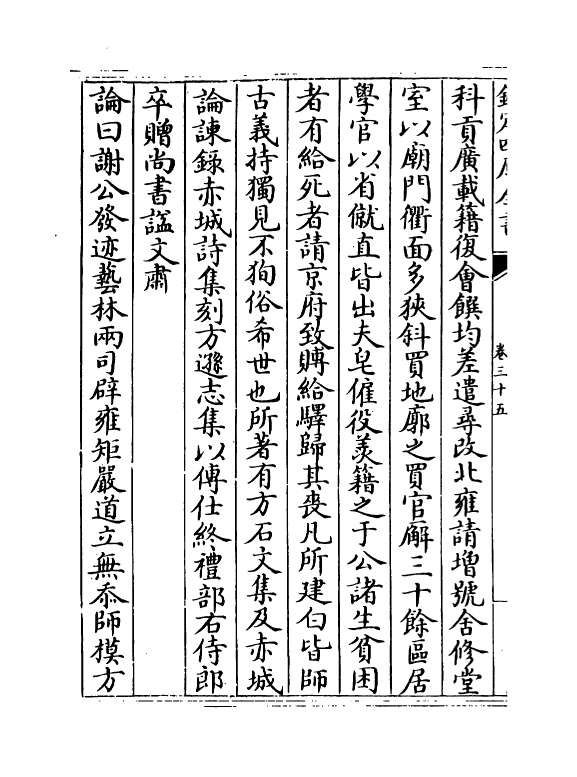 欽定四庫全書
卷三十五
科貢廣載籍復會饌均差遣尋改北雍請增號舍修堂
室以廟門衢面多狹斜買地廓之買官廨三十餘區居
學官以省僦直皆出夫皂僱役羡籍之于公諸生貧困
者有給死者請京府致賻給驛歸其喪凡所建白皆師
古義持獨見不狥俗希世也所著有方石文集及赤城
論諫錄赤城詩集刻方遜志集以傳仕終禮部右侍郎
卒贈尚書謚文肅
論曰謝公發迹藝林兩司辟雍矩嚴道立無忝師模方